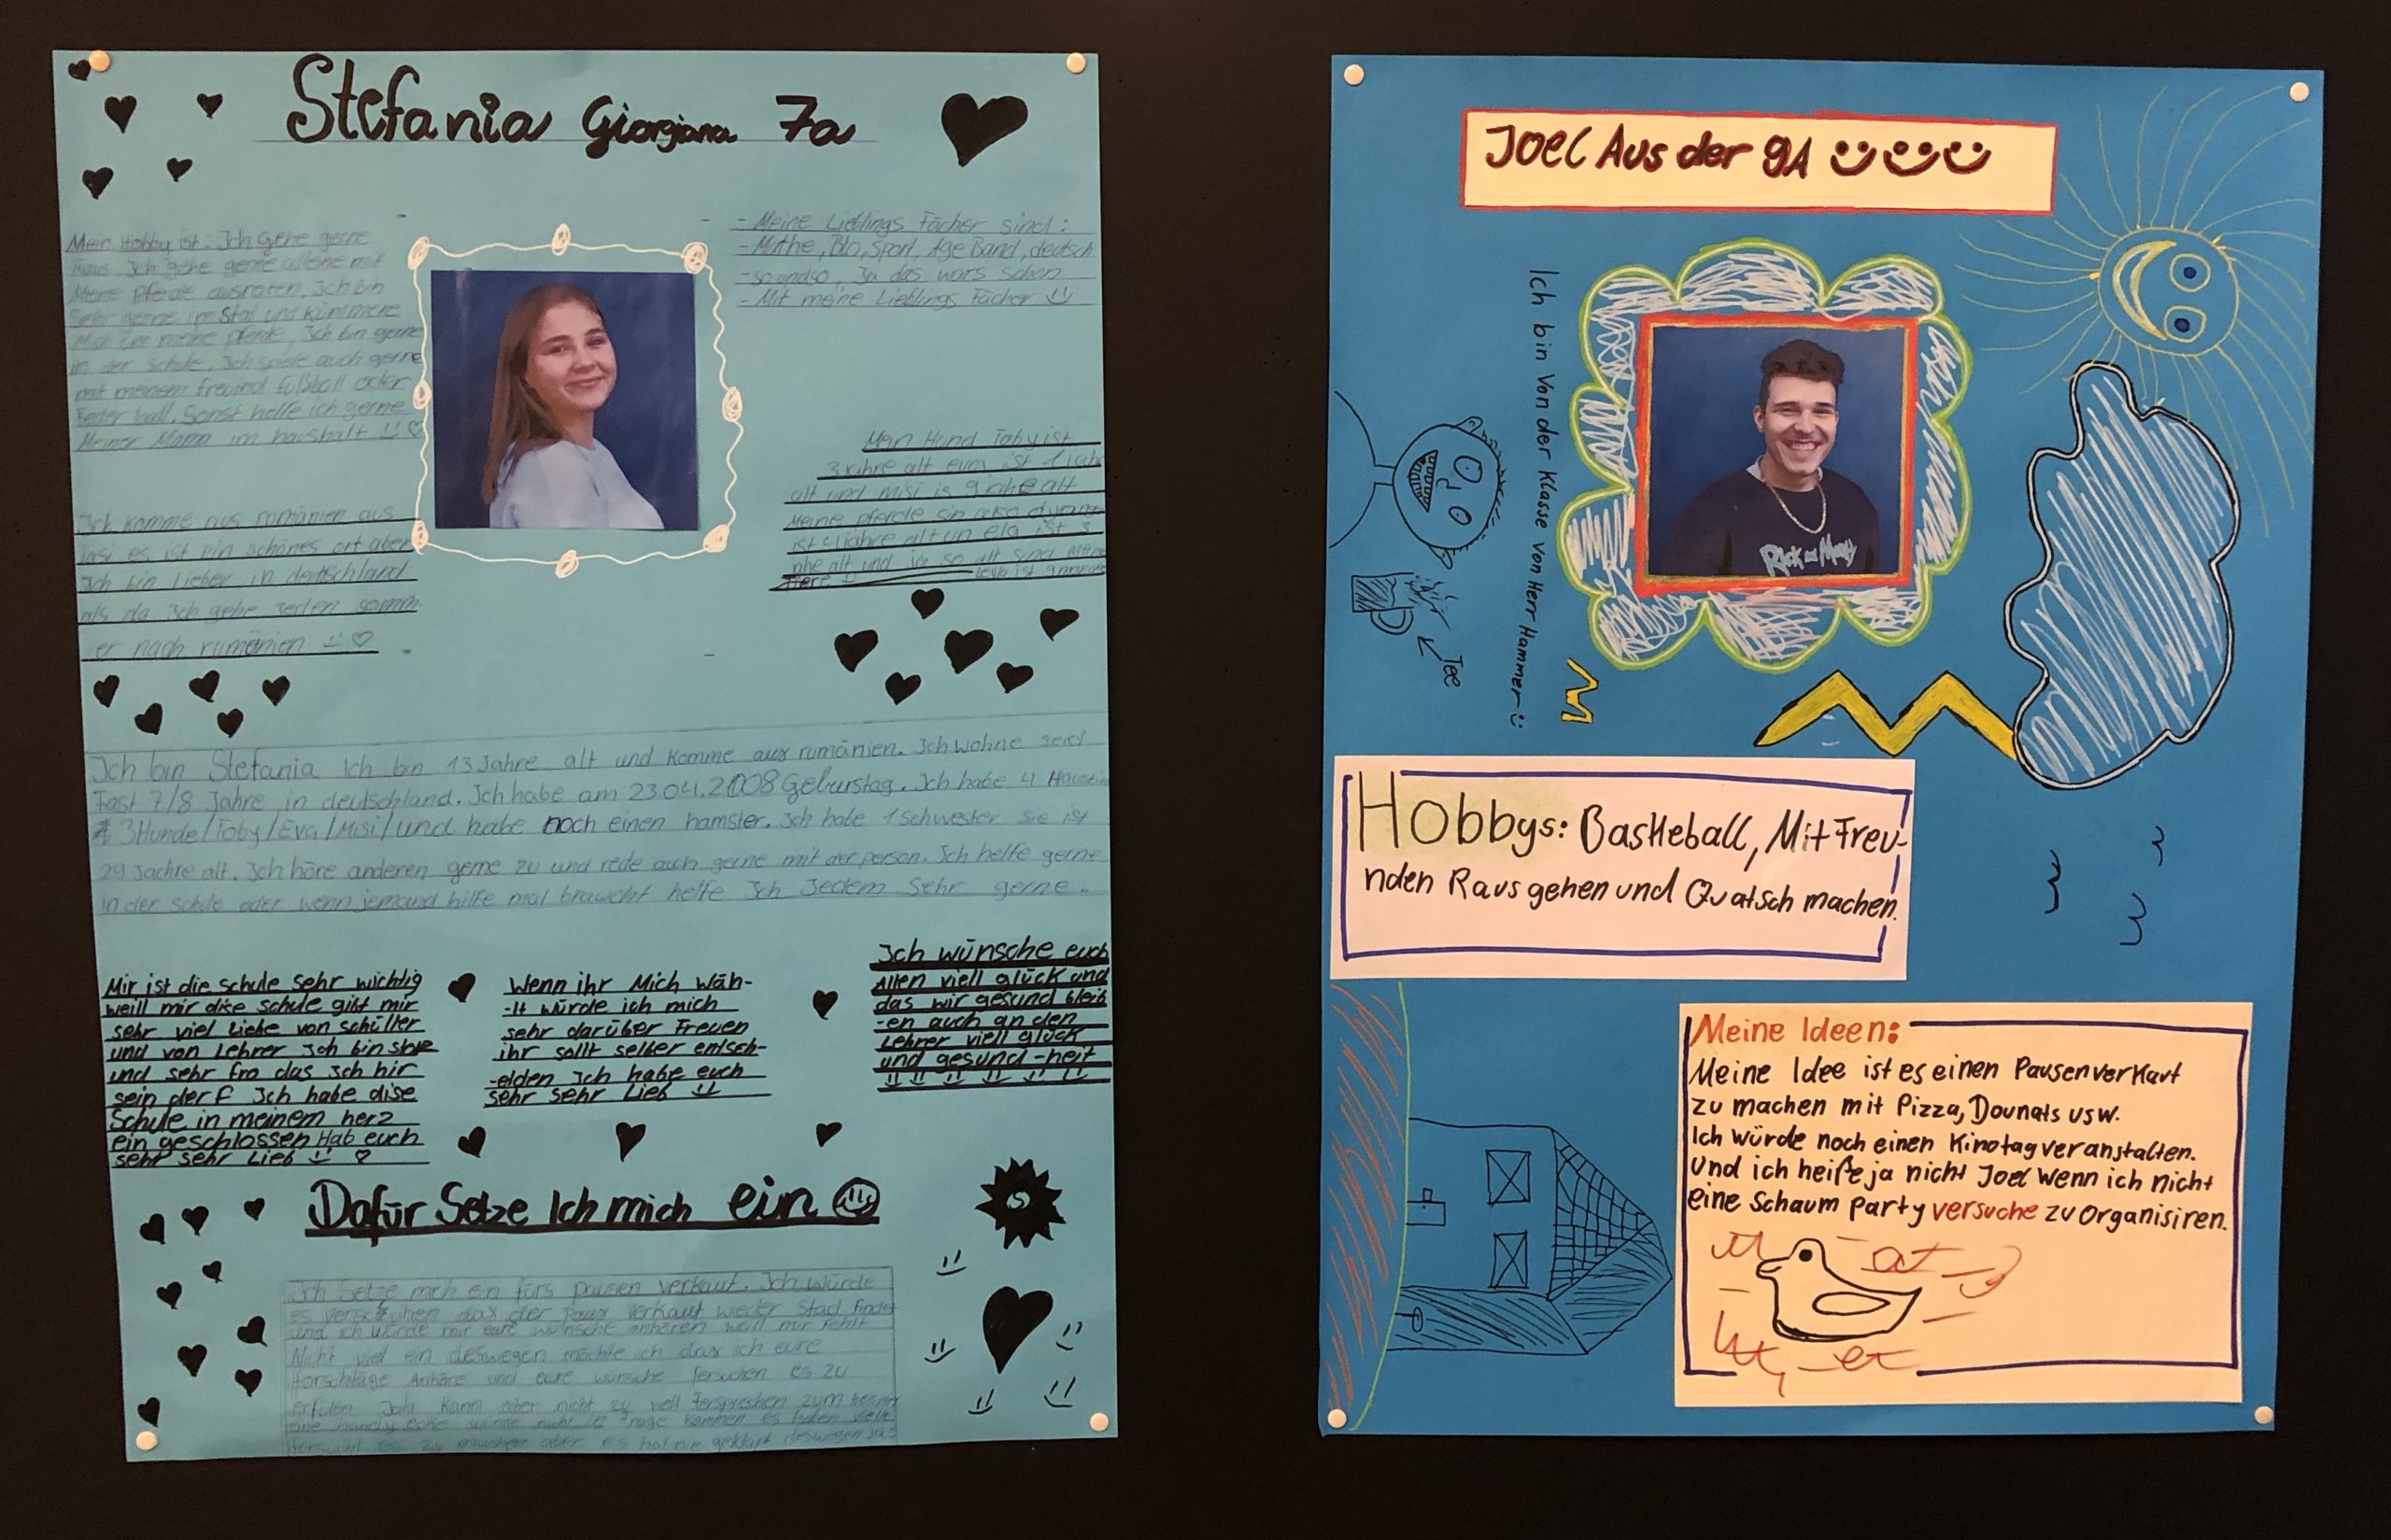 Stefania Giorgiana 7a
Mein Hobby ist: Ich Gehe gerne
Raus. Ich gehe gerne alleine mit
Meine pferde ausraten. Ich bin
Sehr gerne im Stal und kümmere
Mich um meine pferde, Ich bin gerne
in der schule. Ich spiele auch gerne
mit meinem freund fußball oder
Feder ball. Sonst helfe ich gerne
Meiner Mama im haushalt
- Meine Lieblings Fächer sind:
- Mathe, Bio, Sport, Age Band, deutsch
- so undso, Ja das wars schon
- Mit meine Lieblings Fächer
Mein Hund Toby ist
3 jahre alt eva ist 1 jahr
alt und misi is 9 jahe alt
Meine pferde sin also
ist 4 jahre alt un ela ist 3
jahe alt und ja so alt sind meine
Tiere
Ich komme aus rumänien aus
Iasi es ist ein schönes ort aber
Ich bin Lieber in deutschland
als da Ich gehe jeden somm
er nach rumänien
Ich bin Stefania Ich bin 13 Jahre alt und komme aus rumänien. Ich wohne seid
Fast 7/8 Jahre in deutschland. Ich habe am 23.04.2008 Geburstag. Ich habe 4
3 Hunde/Toby/Eva/Misi/und habe noch einen hamster. Ich habe 1 schwester sie ist
29 Jachre alt. Ich höre anderen gerne zu und rede auch gerne mit der person. Ich helfe gerne
in der schule oder wenn jemand hilfe mal braucht helfe Ich Jedem Sehr gerne.
Mir ist die schule sehr wichtig
weill mir dise schule gibt mir
sehr viel Liebe von schüller
und von Lehrer Ich bin
und sehr fro das Ich hir
sein derf Ich habe dise
Schule in meinem herz
ein geschlossen Hab euch
sehr sehr Lieb
Wenn ihr Mich wäh-
-lt würde ich mich
sehr darüber Freuen
ihr sollt selber entsch-
-eiden Ich habe euch
sehr sehr Lieb
Ich wünsche euch
allen viell glück und
das wir gesund bleib
-en auch an den
Lehrer viell glück
und gesund-heit
Dafür Setze Ich mich ein
Ich Setze mich ein fürs pausen verkauf. Ich würde
es versuhen das der Paus verkauf wieder Stad findet
und ich würde mir eure wünsche anhören weil mir fehlt
Nicht viel ein deswegen möchte ich das ich eure
Forschläge Anhöre und eure wünsche fersuchen es zu
erfülen Ich kann aber nicht zu viell Fersprechen zum
eine handy ecke würde nicht in frage kommen es haben viele
fersucht es zu machen aber es hat nie geklapt deswegen
Joel Aus der 9A
Ich bin Von der Klasse von Herr Hammer
Tee
Rick and Morty
Hobbys: Basktteball, Mit Freu-
nden Raus gehen und Quatsch machen.
Meine Ideen:
Meine Idee ist es einen Pausenverkauf
zu machen mit Pizza, Dounats usw.
Ich würde noch einen Kinotag veranstalten.
Und ich heiße ja nicht Joel wenn ich nicht
eine Schaum party versuche zu organisiren.